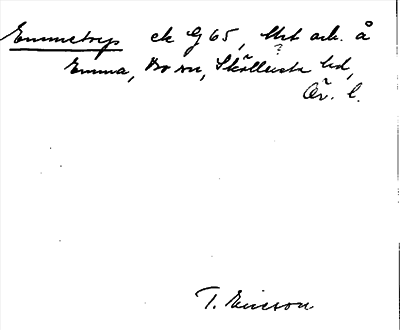 Emmetorp ek G 65, Urt ark. å
?
Emma, Bo sn, Sköllersta hd,
Ör. l.
T. Ericson